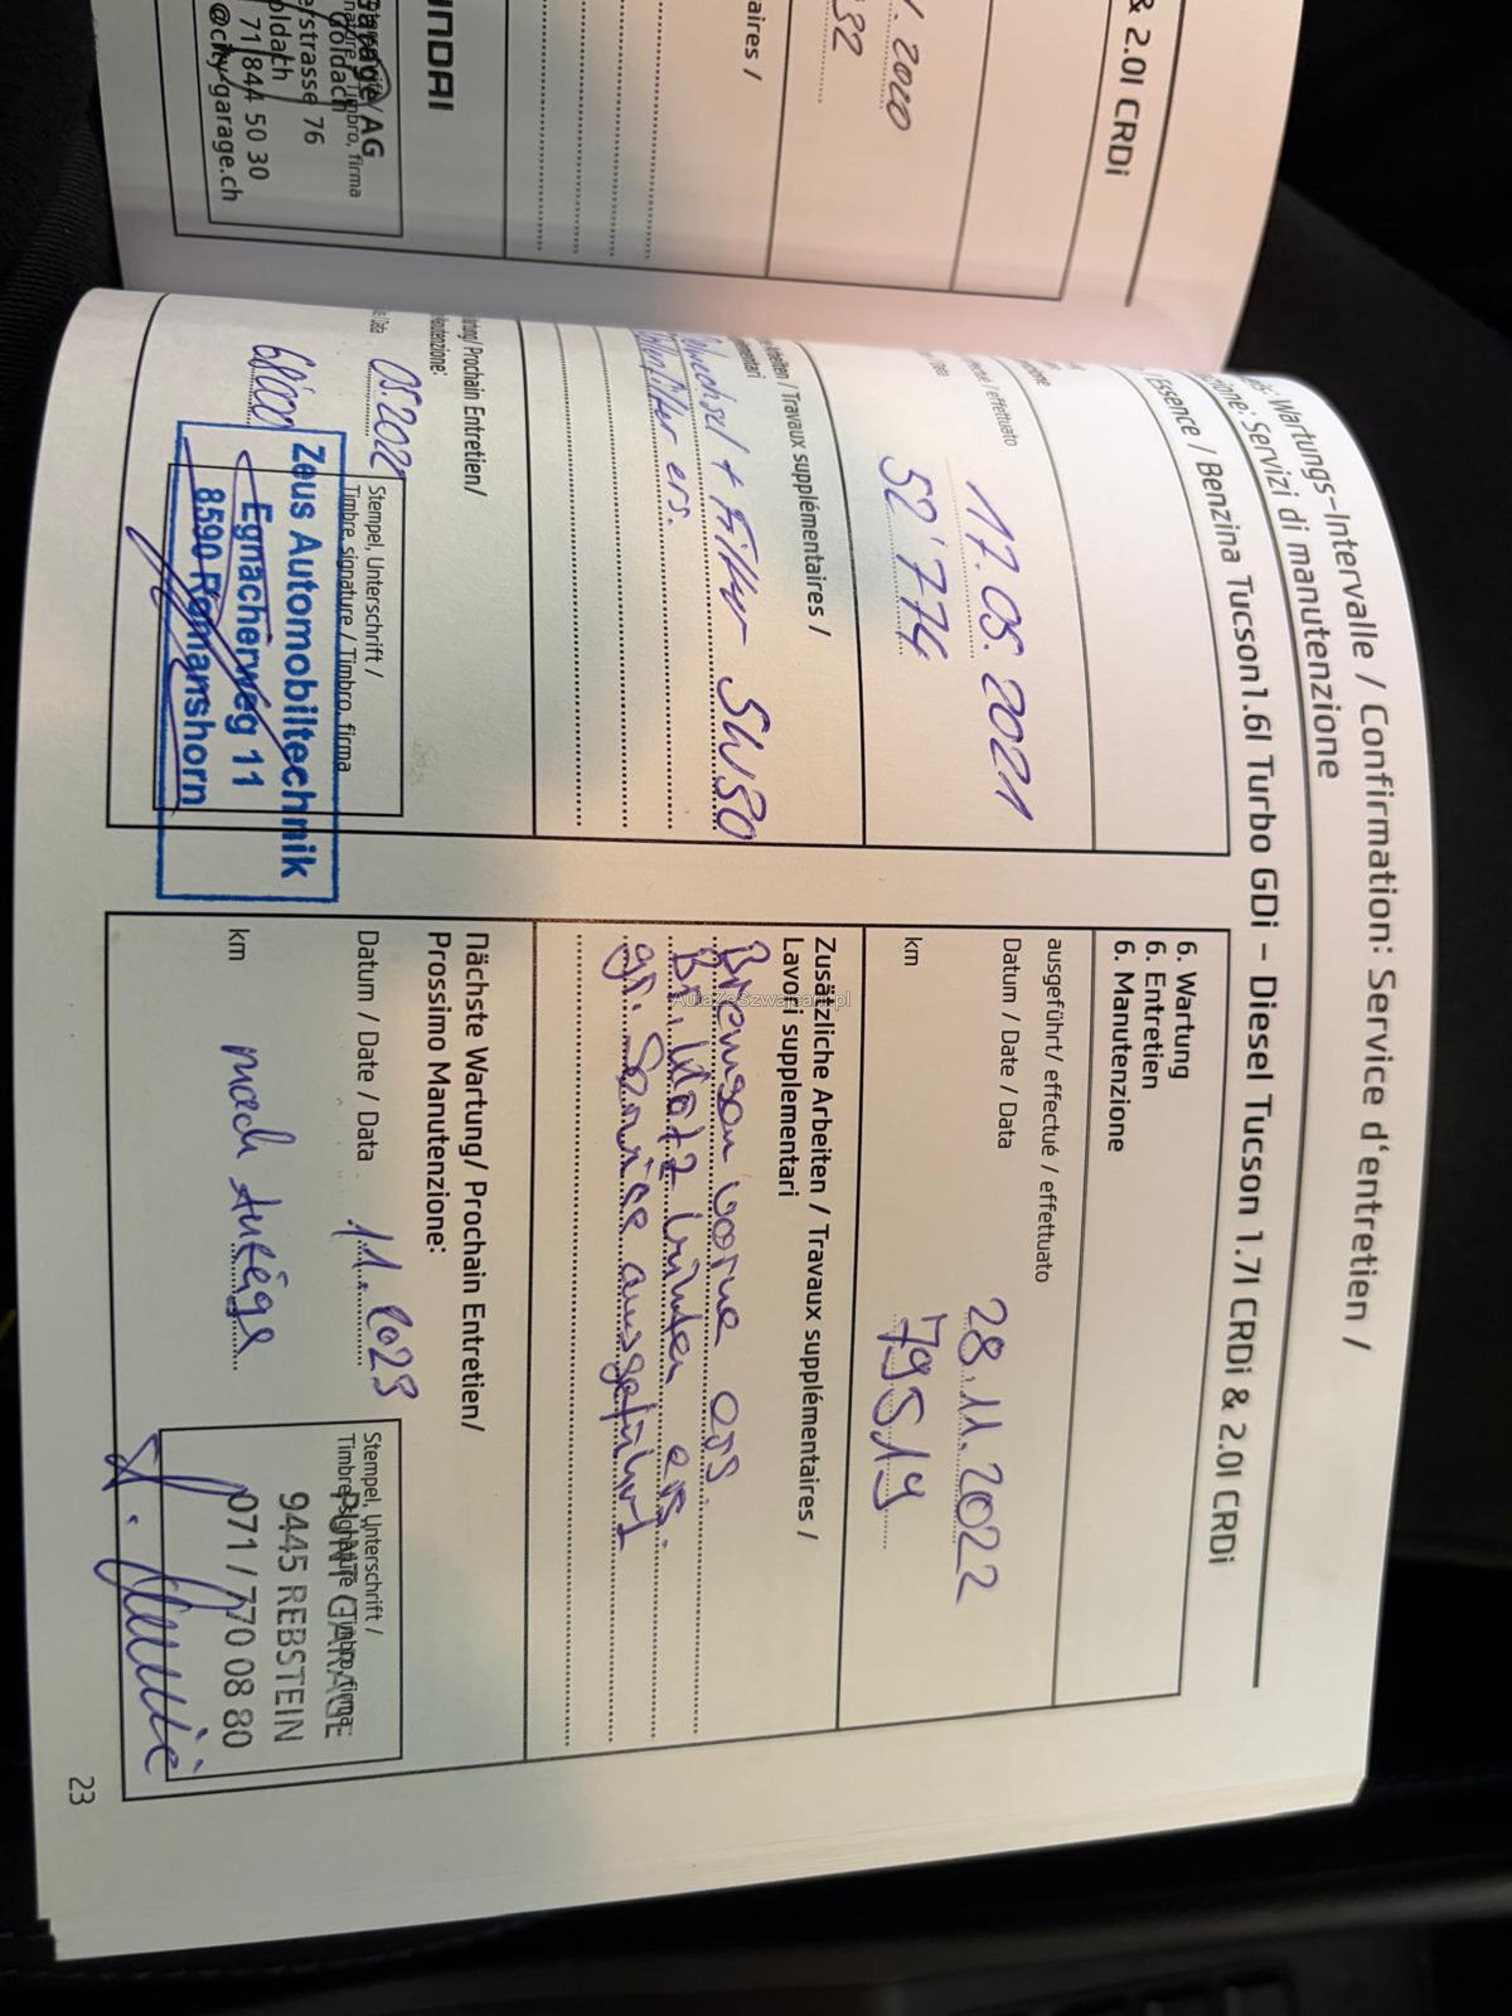 & 2.0l CRDi
. 2020
aires /
Garage AG
Goldach
strasse 76
oldach
71 844 50 30
@city-garage.ch
Wartungs-Intervalle / Confirmation: Service d'entretien /
zione: Servizi di manutenzione
Essence / Benzina Tucson1.6l Turbo GDi – Diesel Tucson 1.7l CRDi & 2.0l CRDi
effettuato
17.05.2021
52'774
Arbeiten / Travaux supplémentaires /
mentari
lwechsel + Filter 5W30
Pollenfilter ers.
tung/ Prochain Entretien/
anutenzione:
Data
05.2022
68'000
Stempel, Unterschrift /
Timbre, signature / Timbro, firma
Zeus Automobiltechnik
Egnacherweg 11
8590 Romanshorn
6. Wartung
6. Entretien
6. Manutenzione
ausgeführt/ effectué / effettuato
Datum / Date / Data
28.11.2022
km
79519
Zusätzliche Arbeiten / Travaux supplémentaires /
Lavori supplementari
Bremsen vorne ers.
Br. Klotz hinten ers.
gr. Service ausgeführt
Nächste Wartung/ Prochain Entretien/
Prossimo Manutenzione:
Datum / Date / Data
11.2023
km
nach Anzeige
Stempel, Unterschrift /
Timbre, signature / Timbro, firma
PUNT GARAGE
9445 REBSTEIN
071 / 770 08 80
23
AutaZeSzwajcarii.pl